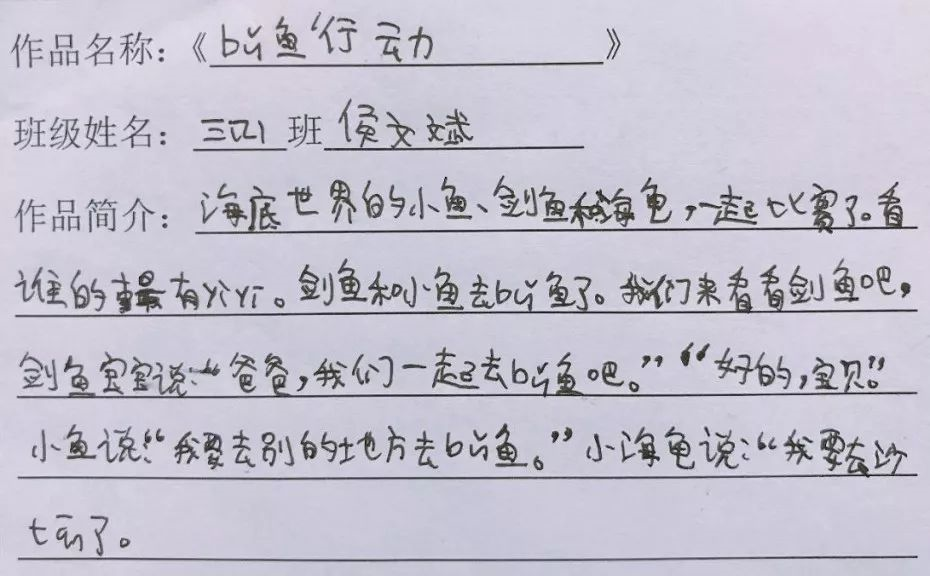 作品名称：《bǔ鱼行动》
班级姓名：三（2）班侯文斌
作品简介：海底世界的小鱼、剑鱼和海龟，一起比赛了。看
谁的最有yì yì。剑鱼和小鱼去bǔ鱼了。我们来看看剑鱼吧，
剑鱼宝宝说：“爸爸，我们一起去bǔ鱼吧。”“好的，宝贝。”
小鱼说：“我要去别的地方去bǔ鱼。”小海龟说：“我要去沙
了。